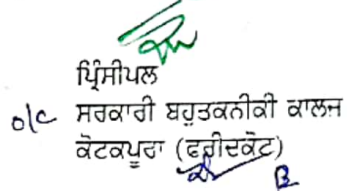 ਪ੍ਰਿੰਸੀਪਲ
o/c ਸਰਕਾਰੀ ਬਹੁਤਕਨੀਕੀ ਕਾਲਜ
ਕੋਟਕਪੂਰਾ (ਫਰੀਦਕੋਟ)